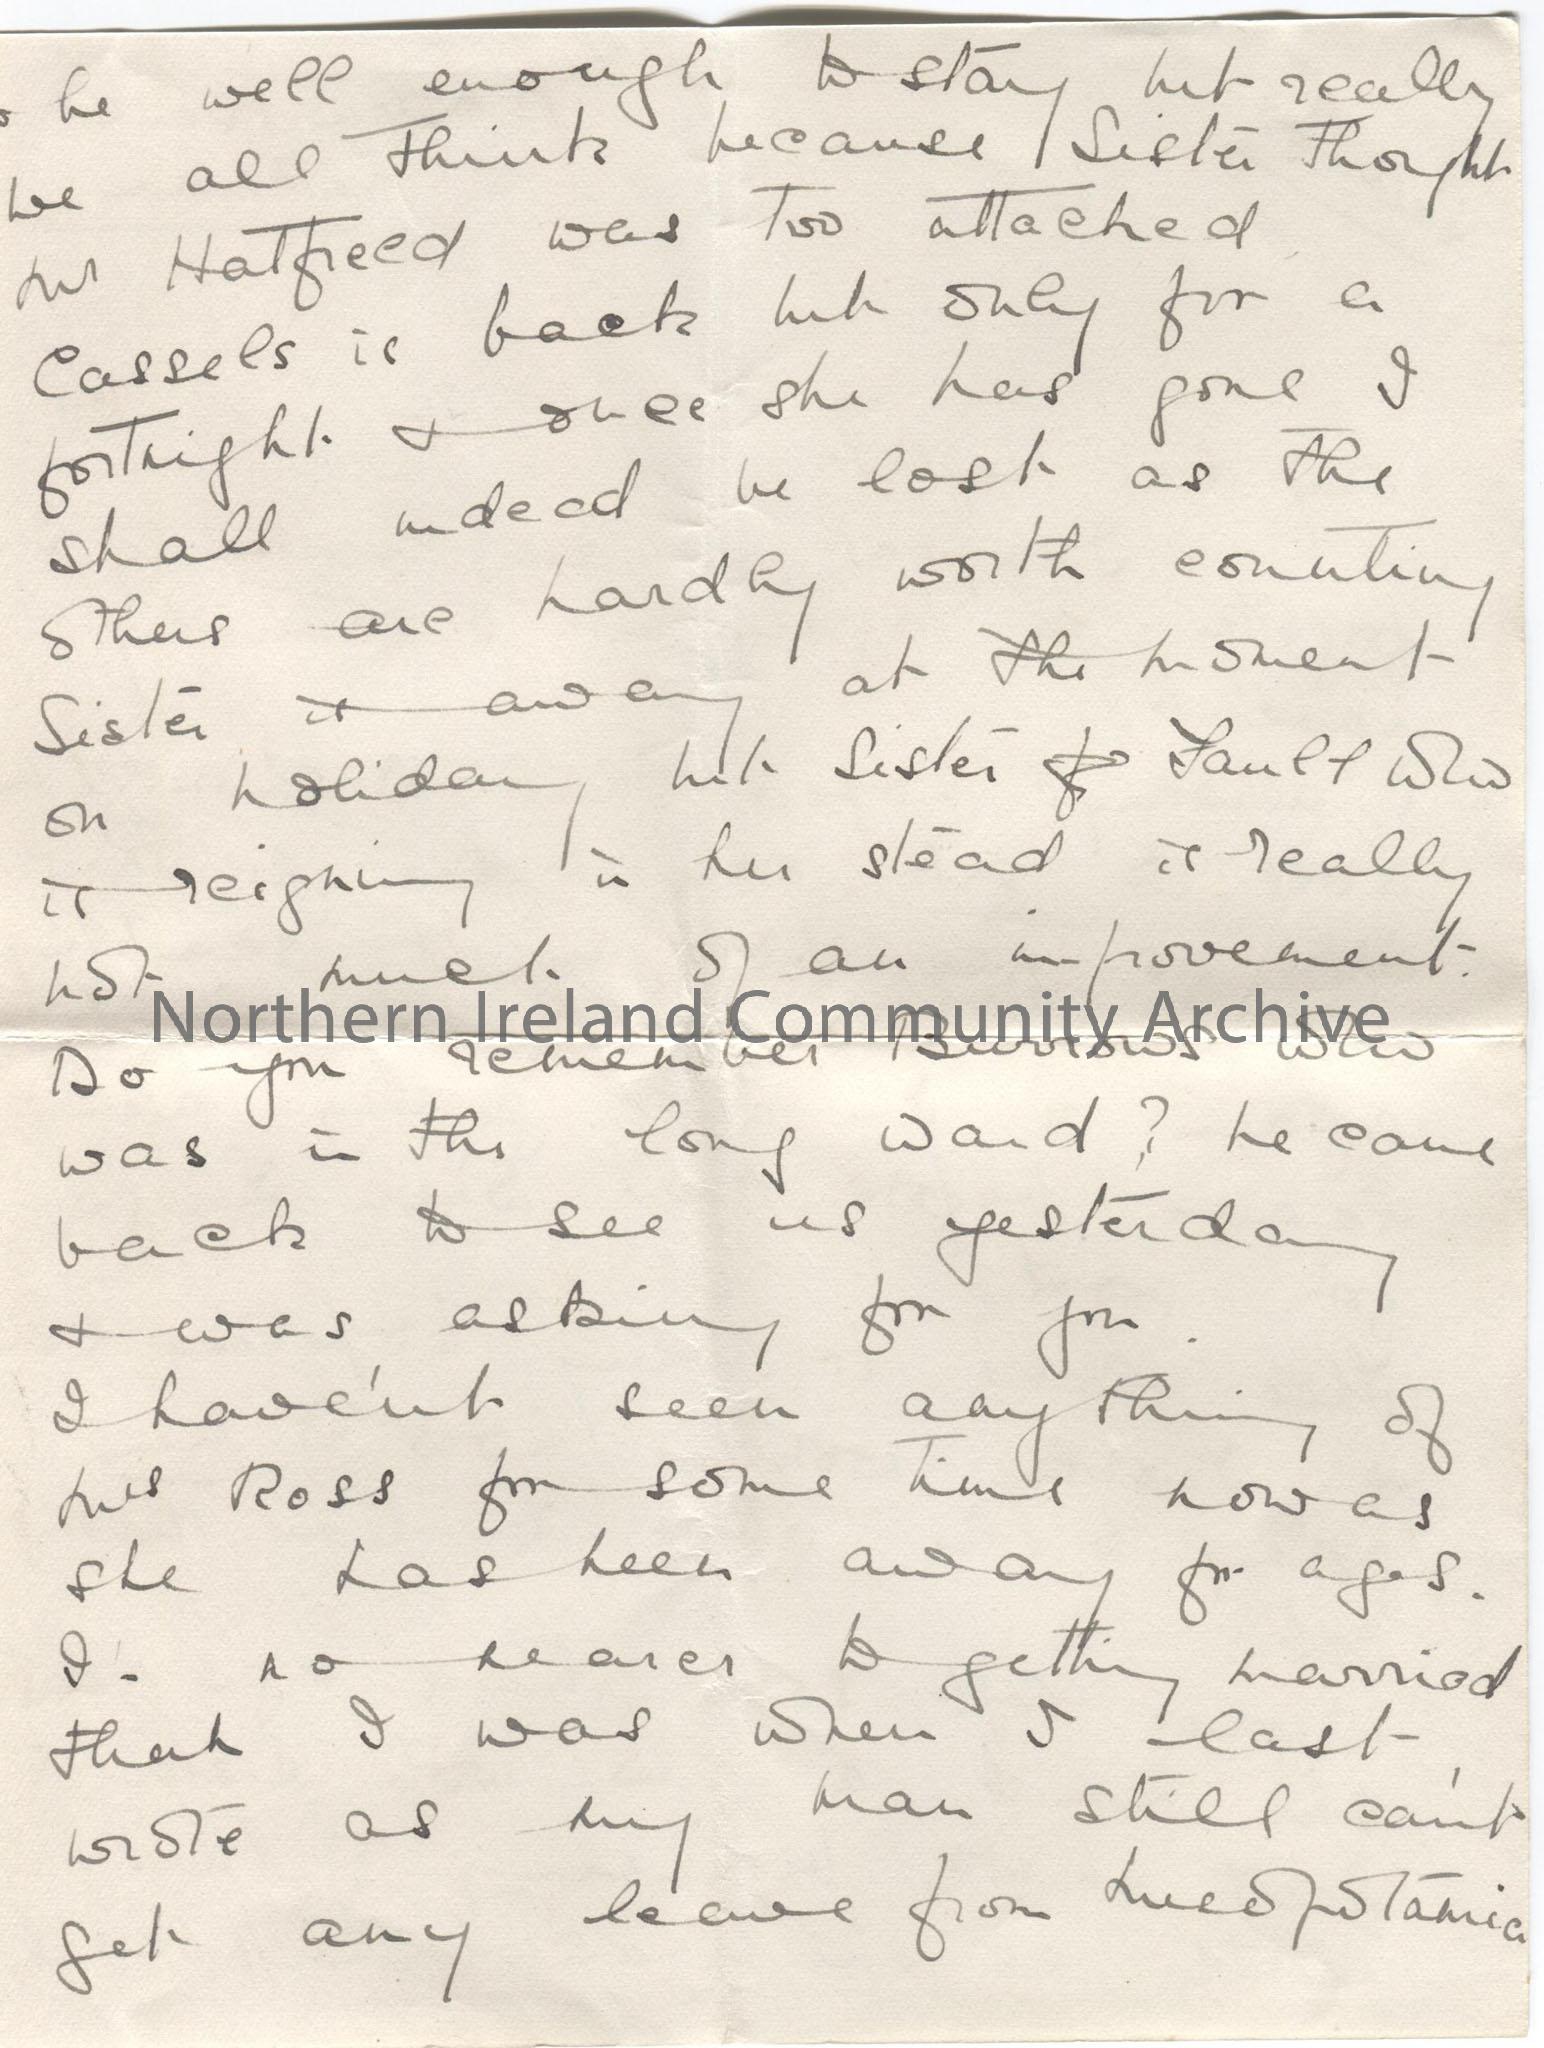 be well enough to stay but really
we all think because Sister thought
Mr Hatfield was too attached
Cassels is back but only for a
fortnight & once she has gone I
shall indeed be lost as the
others are hardly worth counting
Sister is away at the moment
on holiday but Sister Fault who
is reigning in her stead is really
not much of an improvement.
Northern Ireland Community Archive
Do you remember Burrows who
was in the long ward? he came
back to see us yesterday
& was asking for you.
I have'nt seen anything of
Mrs Ross for some time now as
she has been away for ages.
I'm no nearer to getting married
than I was when I last
wrote as my man still can't
get any leave from Mesopotamia